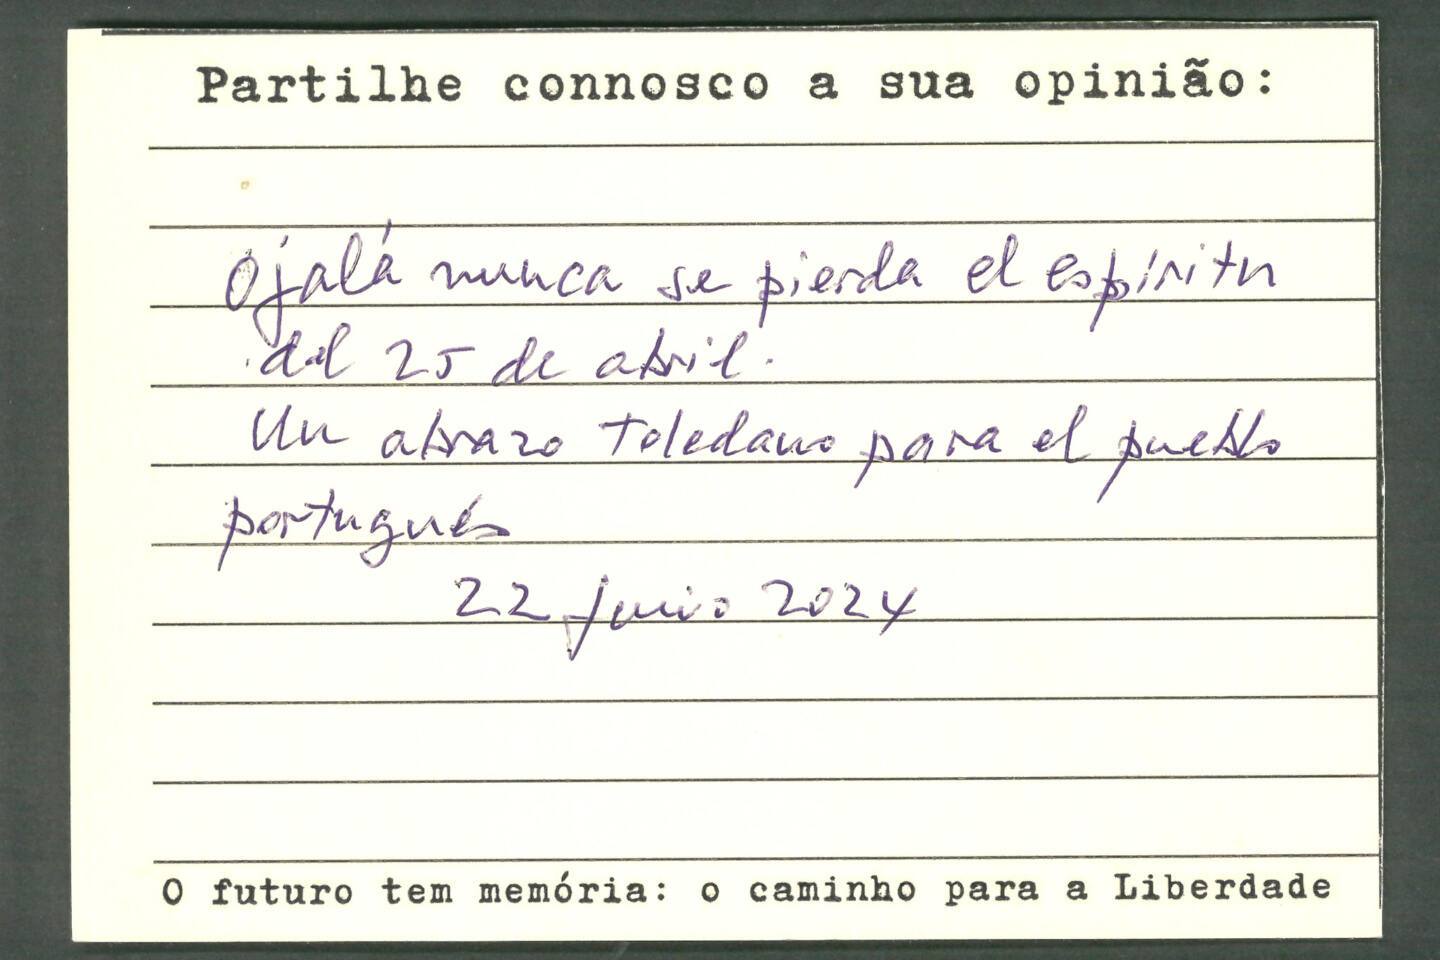 Partilhe connosco a sua opinião:
Ojalá nunca se pierda el espíritu
del 25 de abril.
Un abrazo toledano para el pueblo
portugués
22 junio 2024
O futuro tem memória: o caminho para a Liberdade